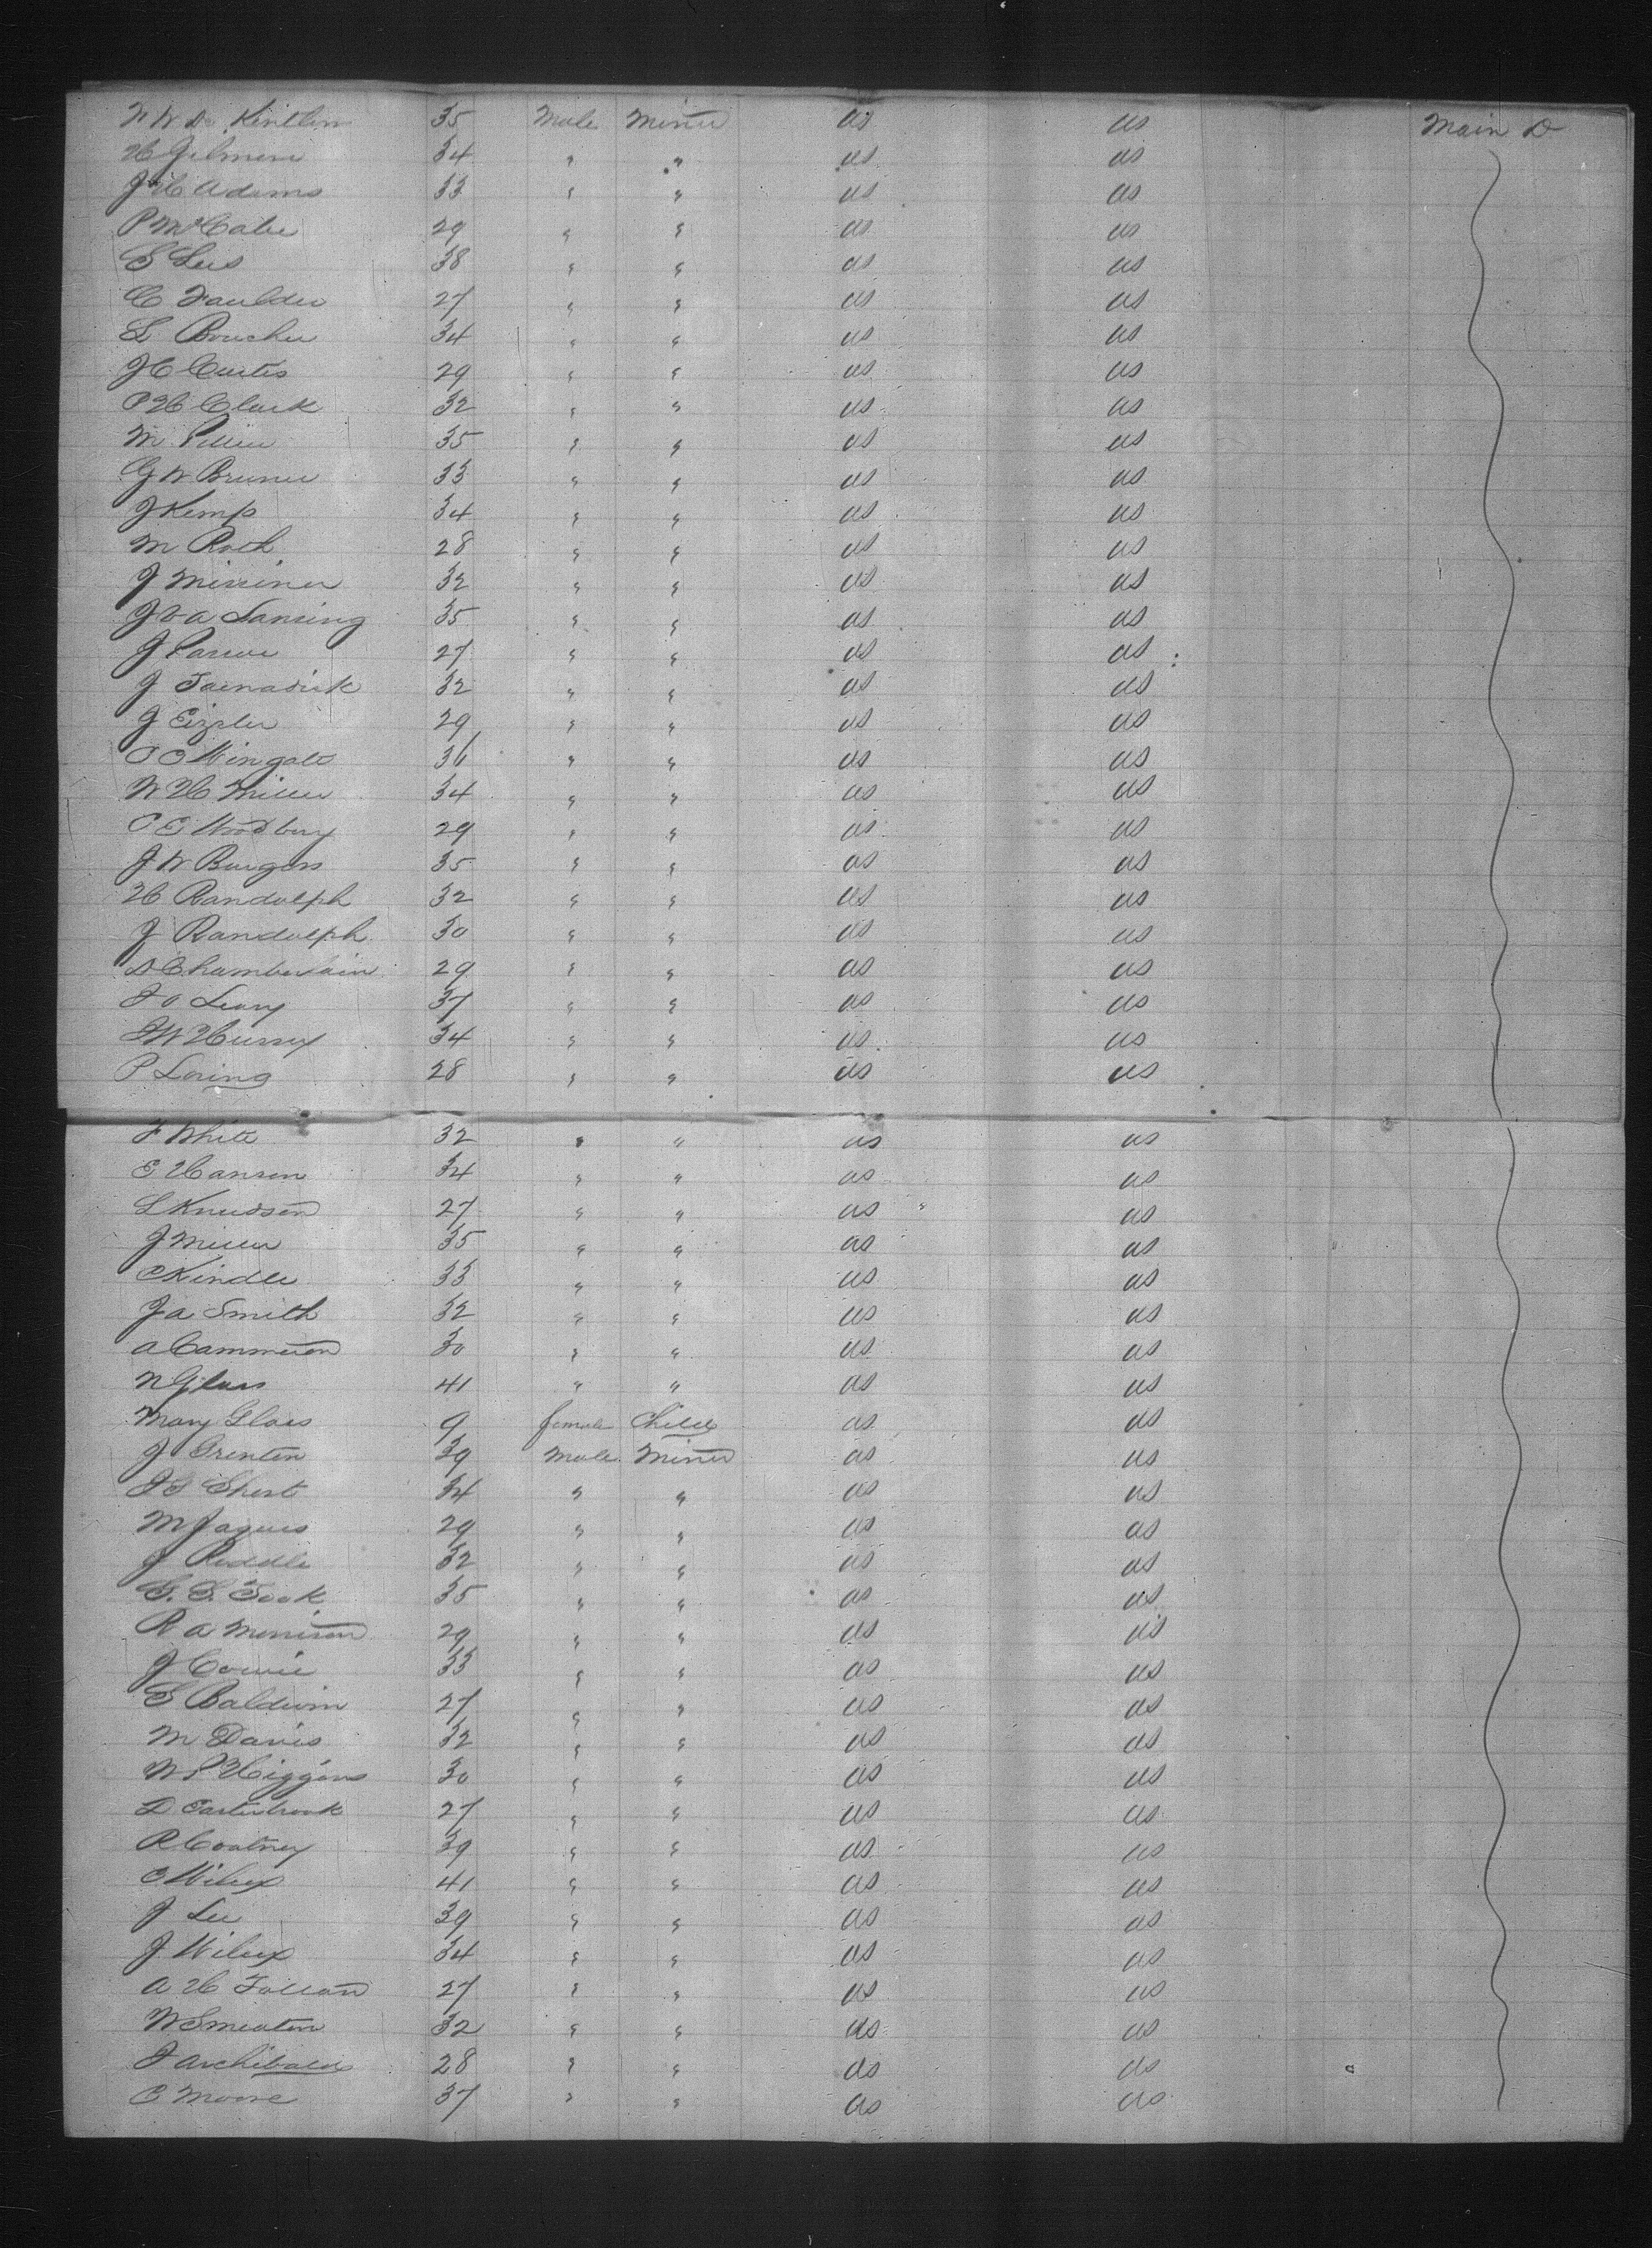 35 Male Miner US US Main D
H Gilmore 34 " " US US
J H Adams 33 " " US US
P McCabe 29 " " US US
S Lees 38 " " US US
C Faulder 27 " " US US
L Boucher 34 " " US US
J C Curtis 29 " " US US
P H Clark 32 " " US US
M 35 " " US US
G W Bruner 33 " " US US
J Kemp 34 " " US US
M Roth 28 " " US US
J Misiner 32 " " US US
J V A Lansing 35 " " US US
J 27 " " US US
J 32 " " US US
J 29 " " US US
P O Wingate 36 " " US US
W H Miller 34 " " US US
C E Woodbury 29 " " US US
J W Burgess 35 " " US US
H Randolph 32 " " US US
J Randolph 30 " " US US
D Chamberlain 29 " " US US
J O Leary 37 " " US US
34 " " US US
P Loring 28 " " US US
F White 32 " " US US
E Hansen 34 " " US US
L Knudsen 27 " " US US
J Miller 35 " " US US
C Kindle 33 " " US US
J A Smith 32 " " US US
A Cammeron 30 " " US US
N Glass 41 " " US US
Mary Glass 9 female Child US US
J Trenten 39 Male Miner US US
34 " " US US
M Jaques 29 " " US US
J Reddle 32 " " US US
35 " " US US
R A Morrison 29 " " US US
J Cowie 33 " " US US
S Baldwin 27 " " US US
M Davis 32 " " US US
W P Higgins 30 " " US US
27 " " US US
R Coatney 39 " " US US
C Wilcox 41 " " US US
J Lee 39 " " US US
J Wilcox 34 " " US US
A H 27 " " US US
W Smeaton 32 " " US US
J Archibald 28 " " US US
C Moore 37 " " US US